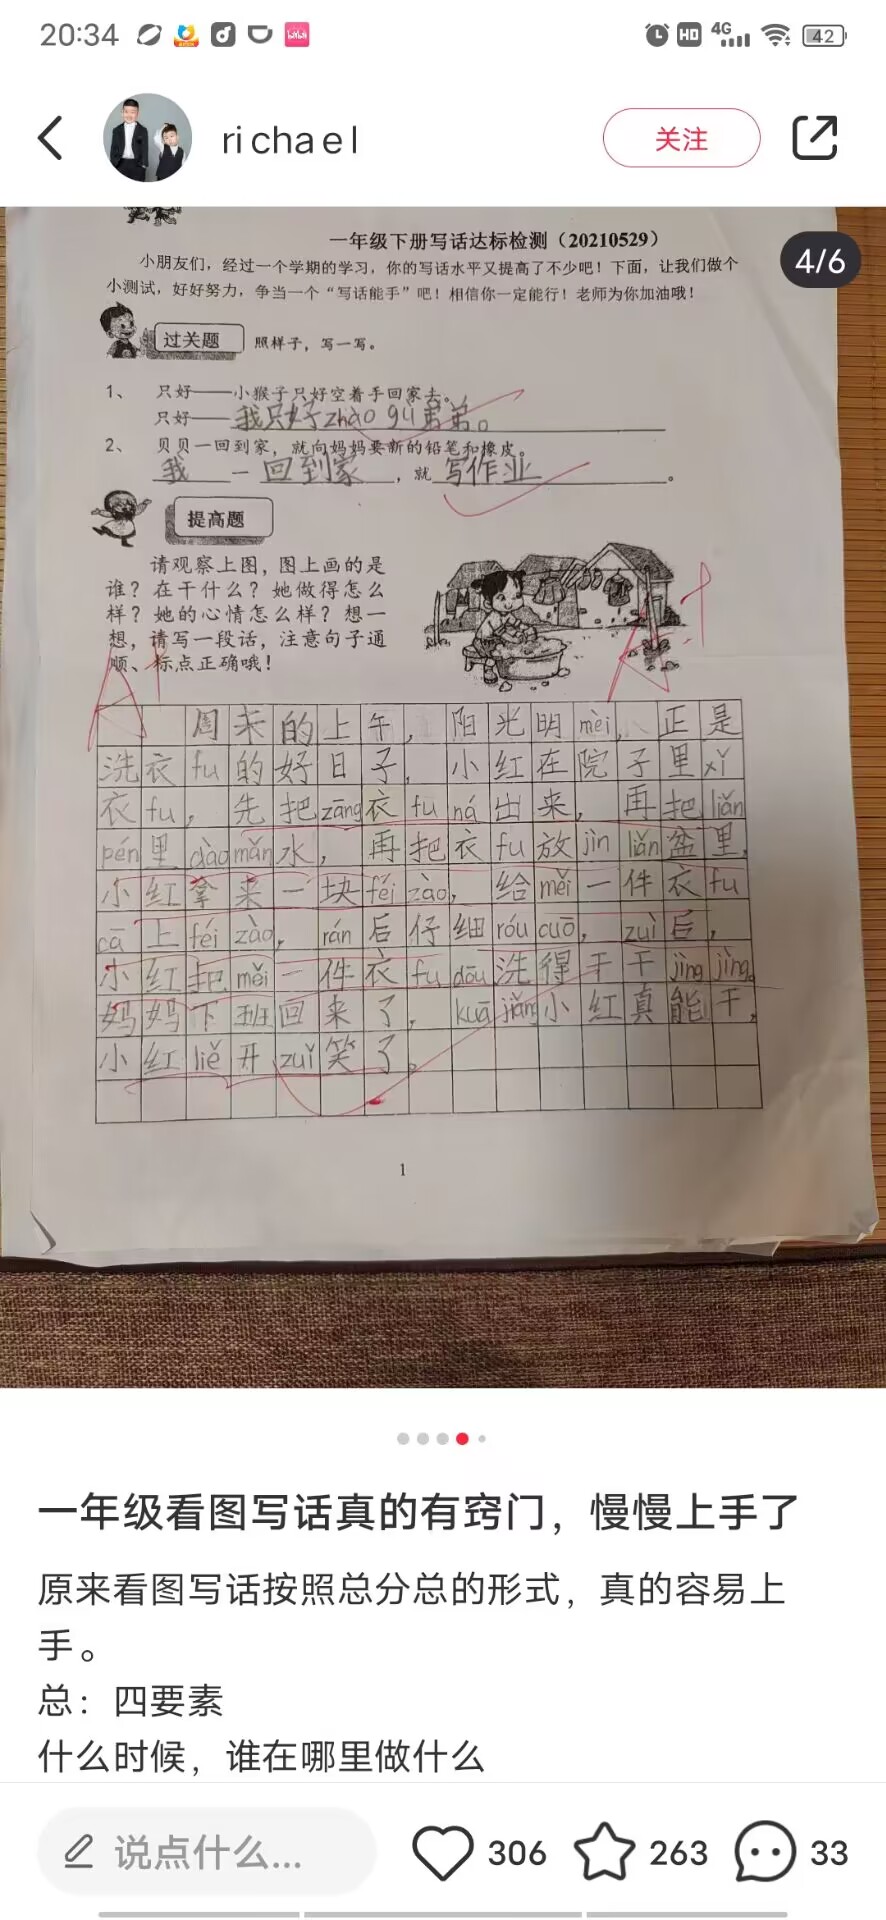 20:34
HD 4G 42
richael
关注
4/6
一年级下册写话达标检测（20210529）
小朋友们，经过一个学期的学习，你的写话水平又提高了不少吧！下面，让我们做个
小测试，好好努力，争当一个“写话能手”吧！相信你一定能行！老师为你加油哦！
过关题 照样子，写一写。
1、 只好——小猴子只好空着手回家去。
只好——我只好zhào gù弟弟。
2、 贝贝一回到家，就向妈妈要新的铅笔和橡皮。
我一回到家，就写作业。
提高题
请观察上图，图上画的是
谁？在干什么？她做得怎么
样？她的心情怎么样？想一
想，请写一段话，注意句子通
顺、标点正确哦！
A+
周末的上午，阳光明mèi，正是
洗衣fu的好日子，小红在院子里xǐ
衣fu，先把zāng衣fu ná出来，再把liǎn
pén里dàomǎn水，再把衣fu放jìn liǎn盆里，
小红拿来一块féi zào，给měi一件衣fu
cā上féi zào，rán后仔细róu cuō，zuì后，
小红把měi一件衣fu dōu洗得干干jìng jìng。
妈妈下班回来了，kuā jiǎng小红真能干，
小红liě开zuǐ笑了。
1
一年级看图写话真的有窍门，慢慢上手了
原来看图写话按照总分总的形式，真的容易上
手。
总：四要素
什么时候，谁在哪里做什么
说点什么... 306 263 33